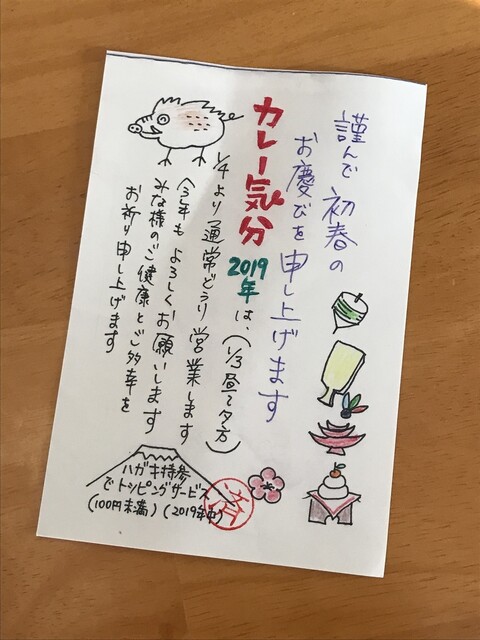 謹んで初春の
お慶びを申し上げます
カレー気分
2019年は、(1/3昼で夕方)
1/4より通常どうり営業します
今年もよろしくお願いします
みな様のご健康とご多幸を
お祈り申し上げます
ハガキ持参
でトッピングサービス
(100円未満)(2019年中)